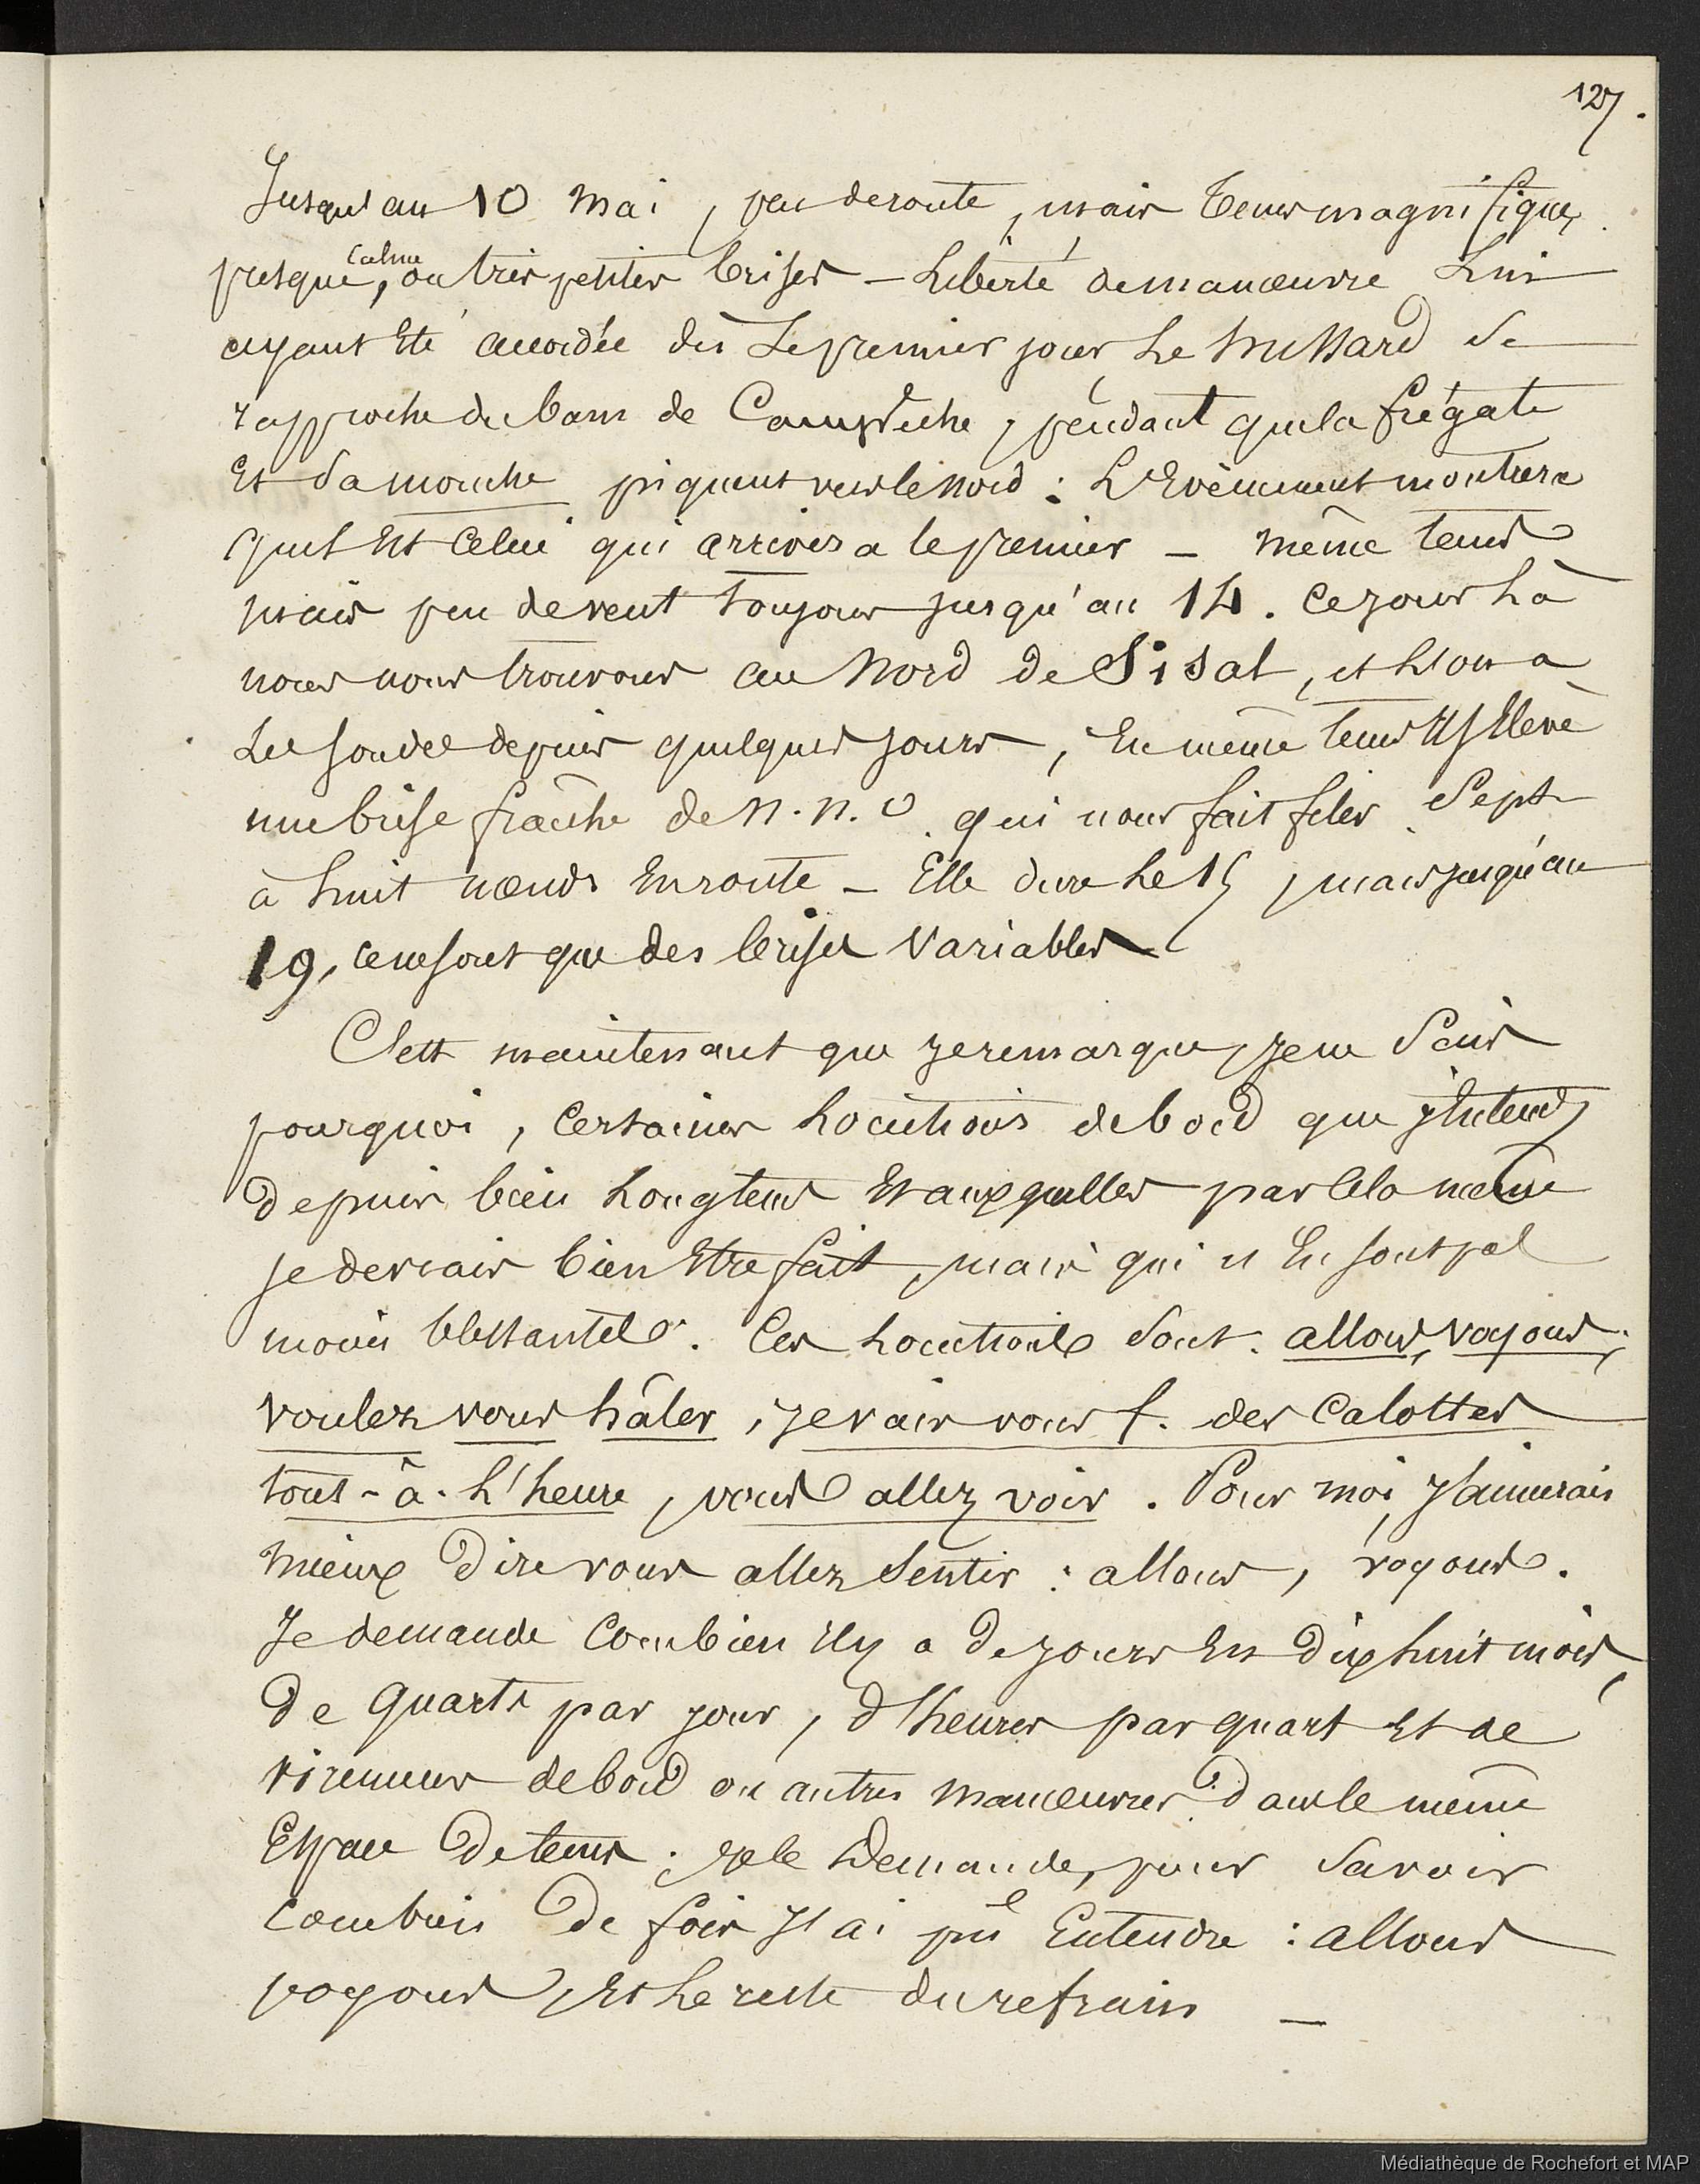 127.
Jusqu'au 10 mai, peu de route, mais tems magnifique,
presque calme, ou très petites brises – Liberté de manœuvre lui
ayant été accordée dès le premier jour, le hussard se
rapproche du banc de Campêche, pendant que la frégate
et sa mouche piquent vers le nord : L'Evènement montrera
quel est celui qui arrivera le premier – même tems
mais peu de vent toujours jusqu'au 14. Ce jour là
nous nous trouvons au Nord de Sisal, et l'on a
les sondes depuis quelques jours, En même tems il s'élève
une brise fraîche de N.N.O. qui nous fait filer Sept
à huit nœuds En route – Elle dure le 15, mais jusqu'au
19, ce ne sont que des brises variables
C'est maintenant que je remarque, je ne sais
pourquoi, certaines locutions de bord que j'entends
depuis bien longtems et auxquelles par cela même
je devrais bien être fait, mais qui n'en sont pas
moins blessantes. Ces locutions sont : allons, voyons,
voulez vous hâler, je vais vous f. des calottes
tout-à-l'heure, vous allez voir. Pour moi, j'aimerais
mieux dire vous allez sentir : allons, voyons.
Je demande combien il y a de jours en dix huit mois,
de quarts par jour, d'heures par quart et de
viremens de bord ou autres manœuvres dans le même
Espace de tems ; je le demande, pour savoir
combien de fois j'ai pu Entendre : allons
voyons, et le reste du refrain –
Médiathèque de Rochefort et MAP